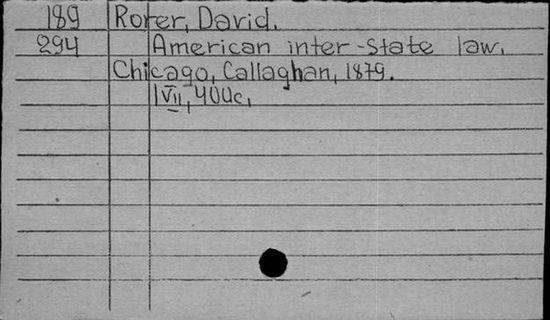 189 Rorer, David.
294 American inter-state law.
Chicago, Callaghan, 1879.
lvii, 400c,